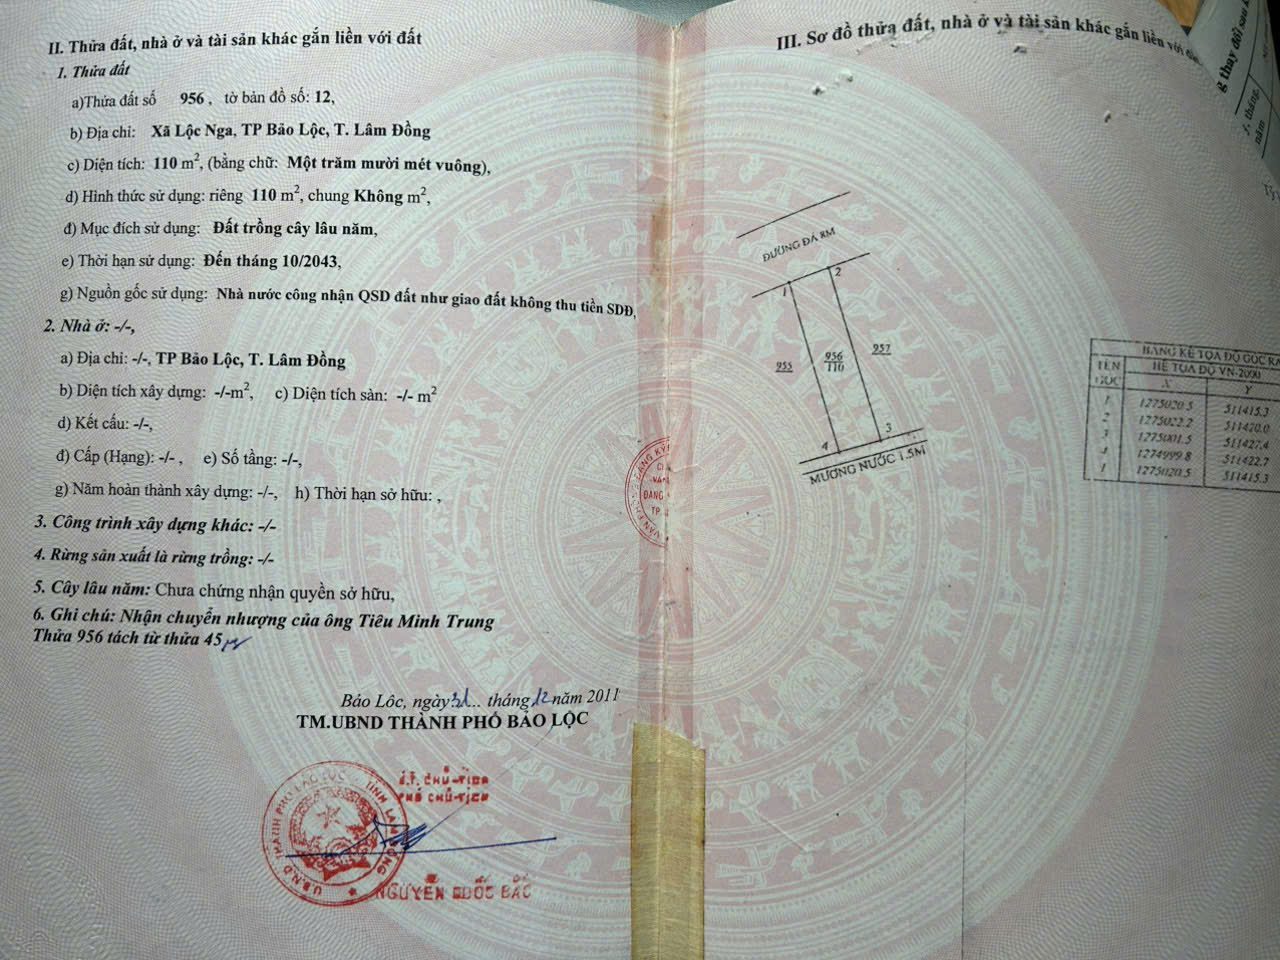 II. Thửa đất, nhà ở và tài sản khác gắn liền với đất
1. Thửa đất
a)Thửa đất số 956 , tờ bản đồ số: 12,
b) Địa chỉ: Xã Lộc Nga, TP Bảo Lộc, T. Lâm Đồng
c) Diện tích: 110 m², (bằng chữ: Một trăm mười mét vuông),
d) Hình thức sử dụng: riêng 110 m², chung Không m²,
đ) Mục đích sử dụng: Đất trồng cây lâu năm,
e) Thời hạn sử dụng: Đến tháng 10/2043,
g) Nguồn gốc sử dụng: Nhà nước công nhận QSD đất như giao đất không thu tiền SDĐ,
2. Nhà ở: -/-,
a) Địa chỉ: -/-, TP Bảo Lộc, T. Lâm Đồng
b) Diện tích xây dựng: -/-m², c) Diện tích sàn: -/- m²
d) Kết cấu: -/-,
đ) Cấp (Hạng): -/- , e) Số tầng: -/-,
g) Năm hoàn thành xây dựng: -/-, h) Thời hạn sở hữu: ,
3. Công trình xây dựng khác: -/-
4. Rừng sản xuất là rừng trồng: -/-
5. Cây lâu năm: Chưa chứng nhận quyền sở hữu,
6. Ghi chú: Nhận chuyển nhượng của ông Tiêu Minh Trung
Thửa 956 tách từ thửa 45
Bảo Lộc, ngày ... tháng 12 năm 2011
TM.UBND THÀNH PHỐ BẢO LỘC
K.T. CHỦ-TỊCH
PHÓ CHỦ-TỊCH
U.B.N.D THÀNH PHỐ BẢO LỘC TỈNH LÂM ĐỒNG
NGUYỄN QUỐC BẮC
III. Sơ đồ thửa đất, nhà ở và tài sản khác gắn liền với
ĐƯỜNG ĐÁ 8M
1
2
955
956
110
957
3
4
MƯƠNG NƯỚC 1.5M
VĂN PHÒNG ĐĂNG KÝ
BẢNG KÊ TỌA ĐỘ GÓC RA
TÊN GÓC
HỆ TỌA ĐỘ VN-2000
X Y
1 1275020.5 511415.3
2 1275022.2 511420.0
3 1275001.5 511427.4
4 1274999.8 511422.7
1 1275020.5 511415.3
g thay đổi sau
, tháng,
năm